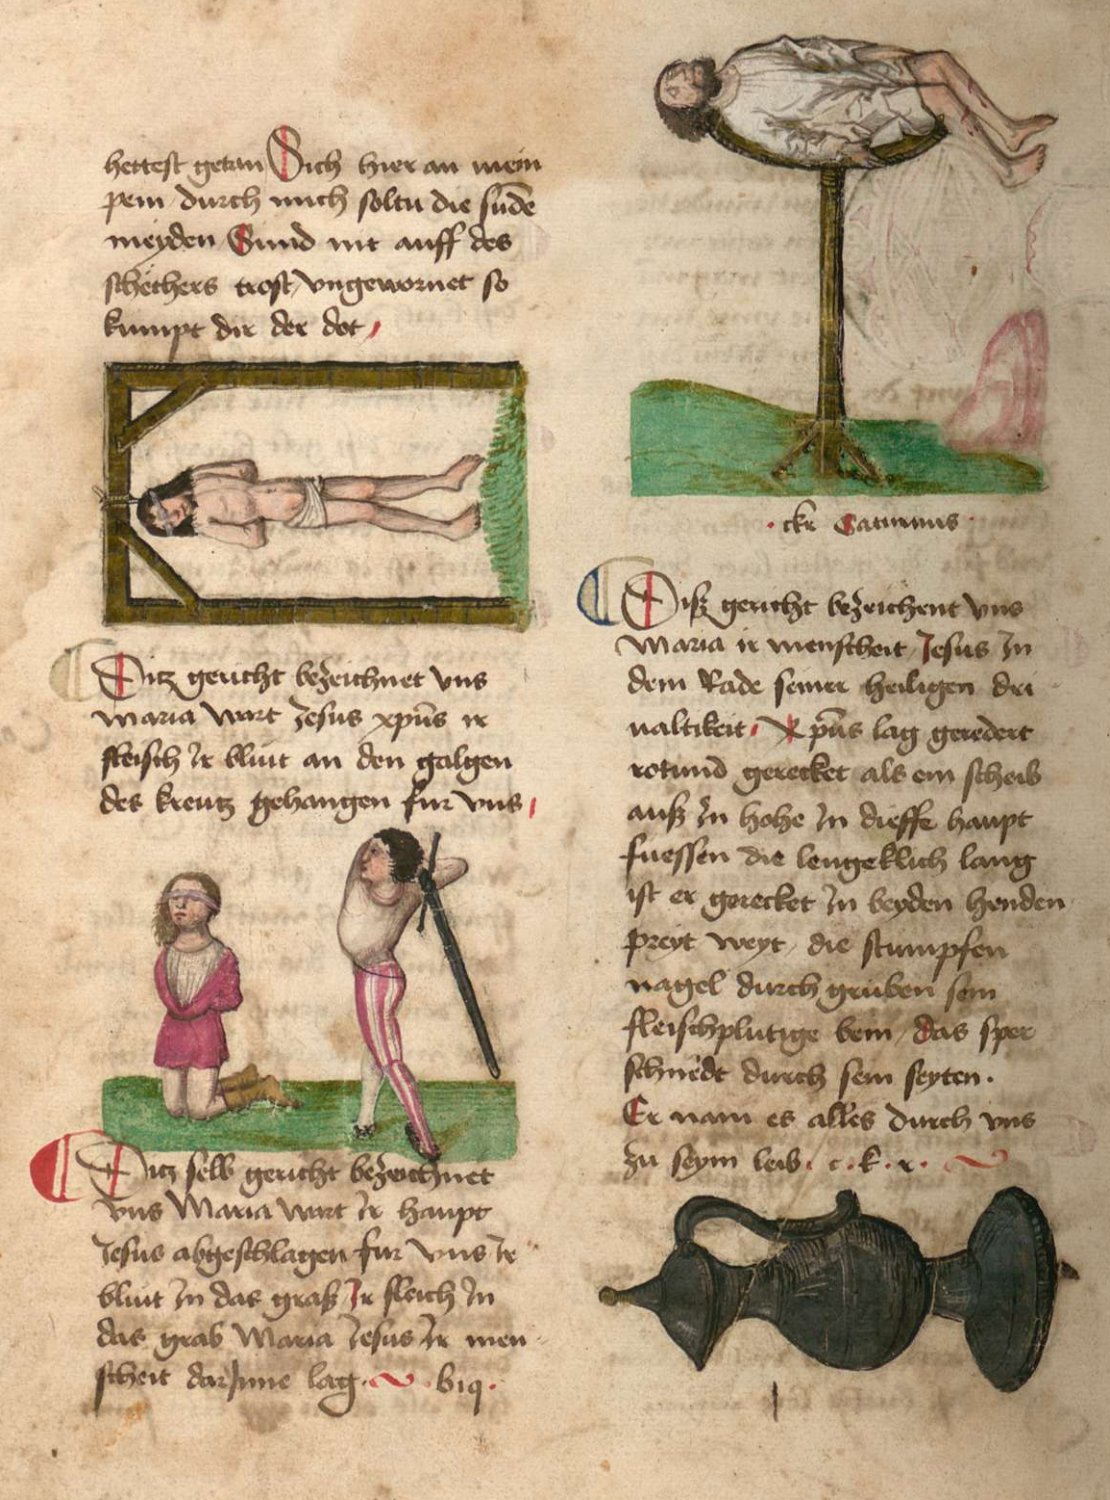 hettest getan Dich hier an mein
pein durch mich soltu die sunde
meyden Sund nit auff des
schechers trost vngewornet so
kumpt dir der dot
Ditz gericht bezeichnet vns
maria wart Jesus xp̄us ir
fleisch ir bluit an den galgen
des kreutz gehangen fur vns
Ditz selb gericht bezeichnet
vns Maria wart ir haupt
Jesus abgeschlagen fur vns ir
bluit in das graß ir fleich in
das grab Maria Jesus ir men
scheit dar Inne lag. biq.
. ckr Saturnus .
Diß gericht bezeichent vns
Maria ir menscheit Jesus In
dem Rade seiner heiligen dri
ualtikeit Xp̄us lag geredert
rotund gerecket als ein scheib
auß in hohe in dieffe haupt
fuessen die lengeklich lang
ist er gerecket in beyden henden
preyt weyt die stumpfen
nagel durch gruben sein
fleischplutige bein das sper
schnedt durch sein seyten.
Er nam es alles durch vns
zu seym leib. c. k. r.